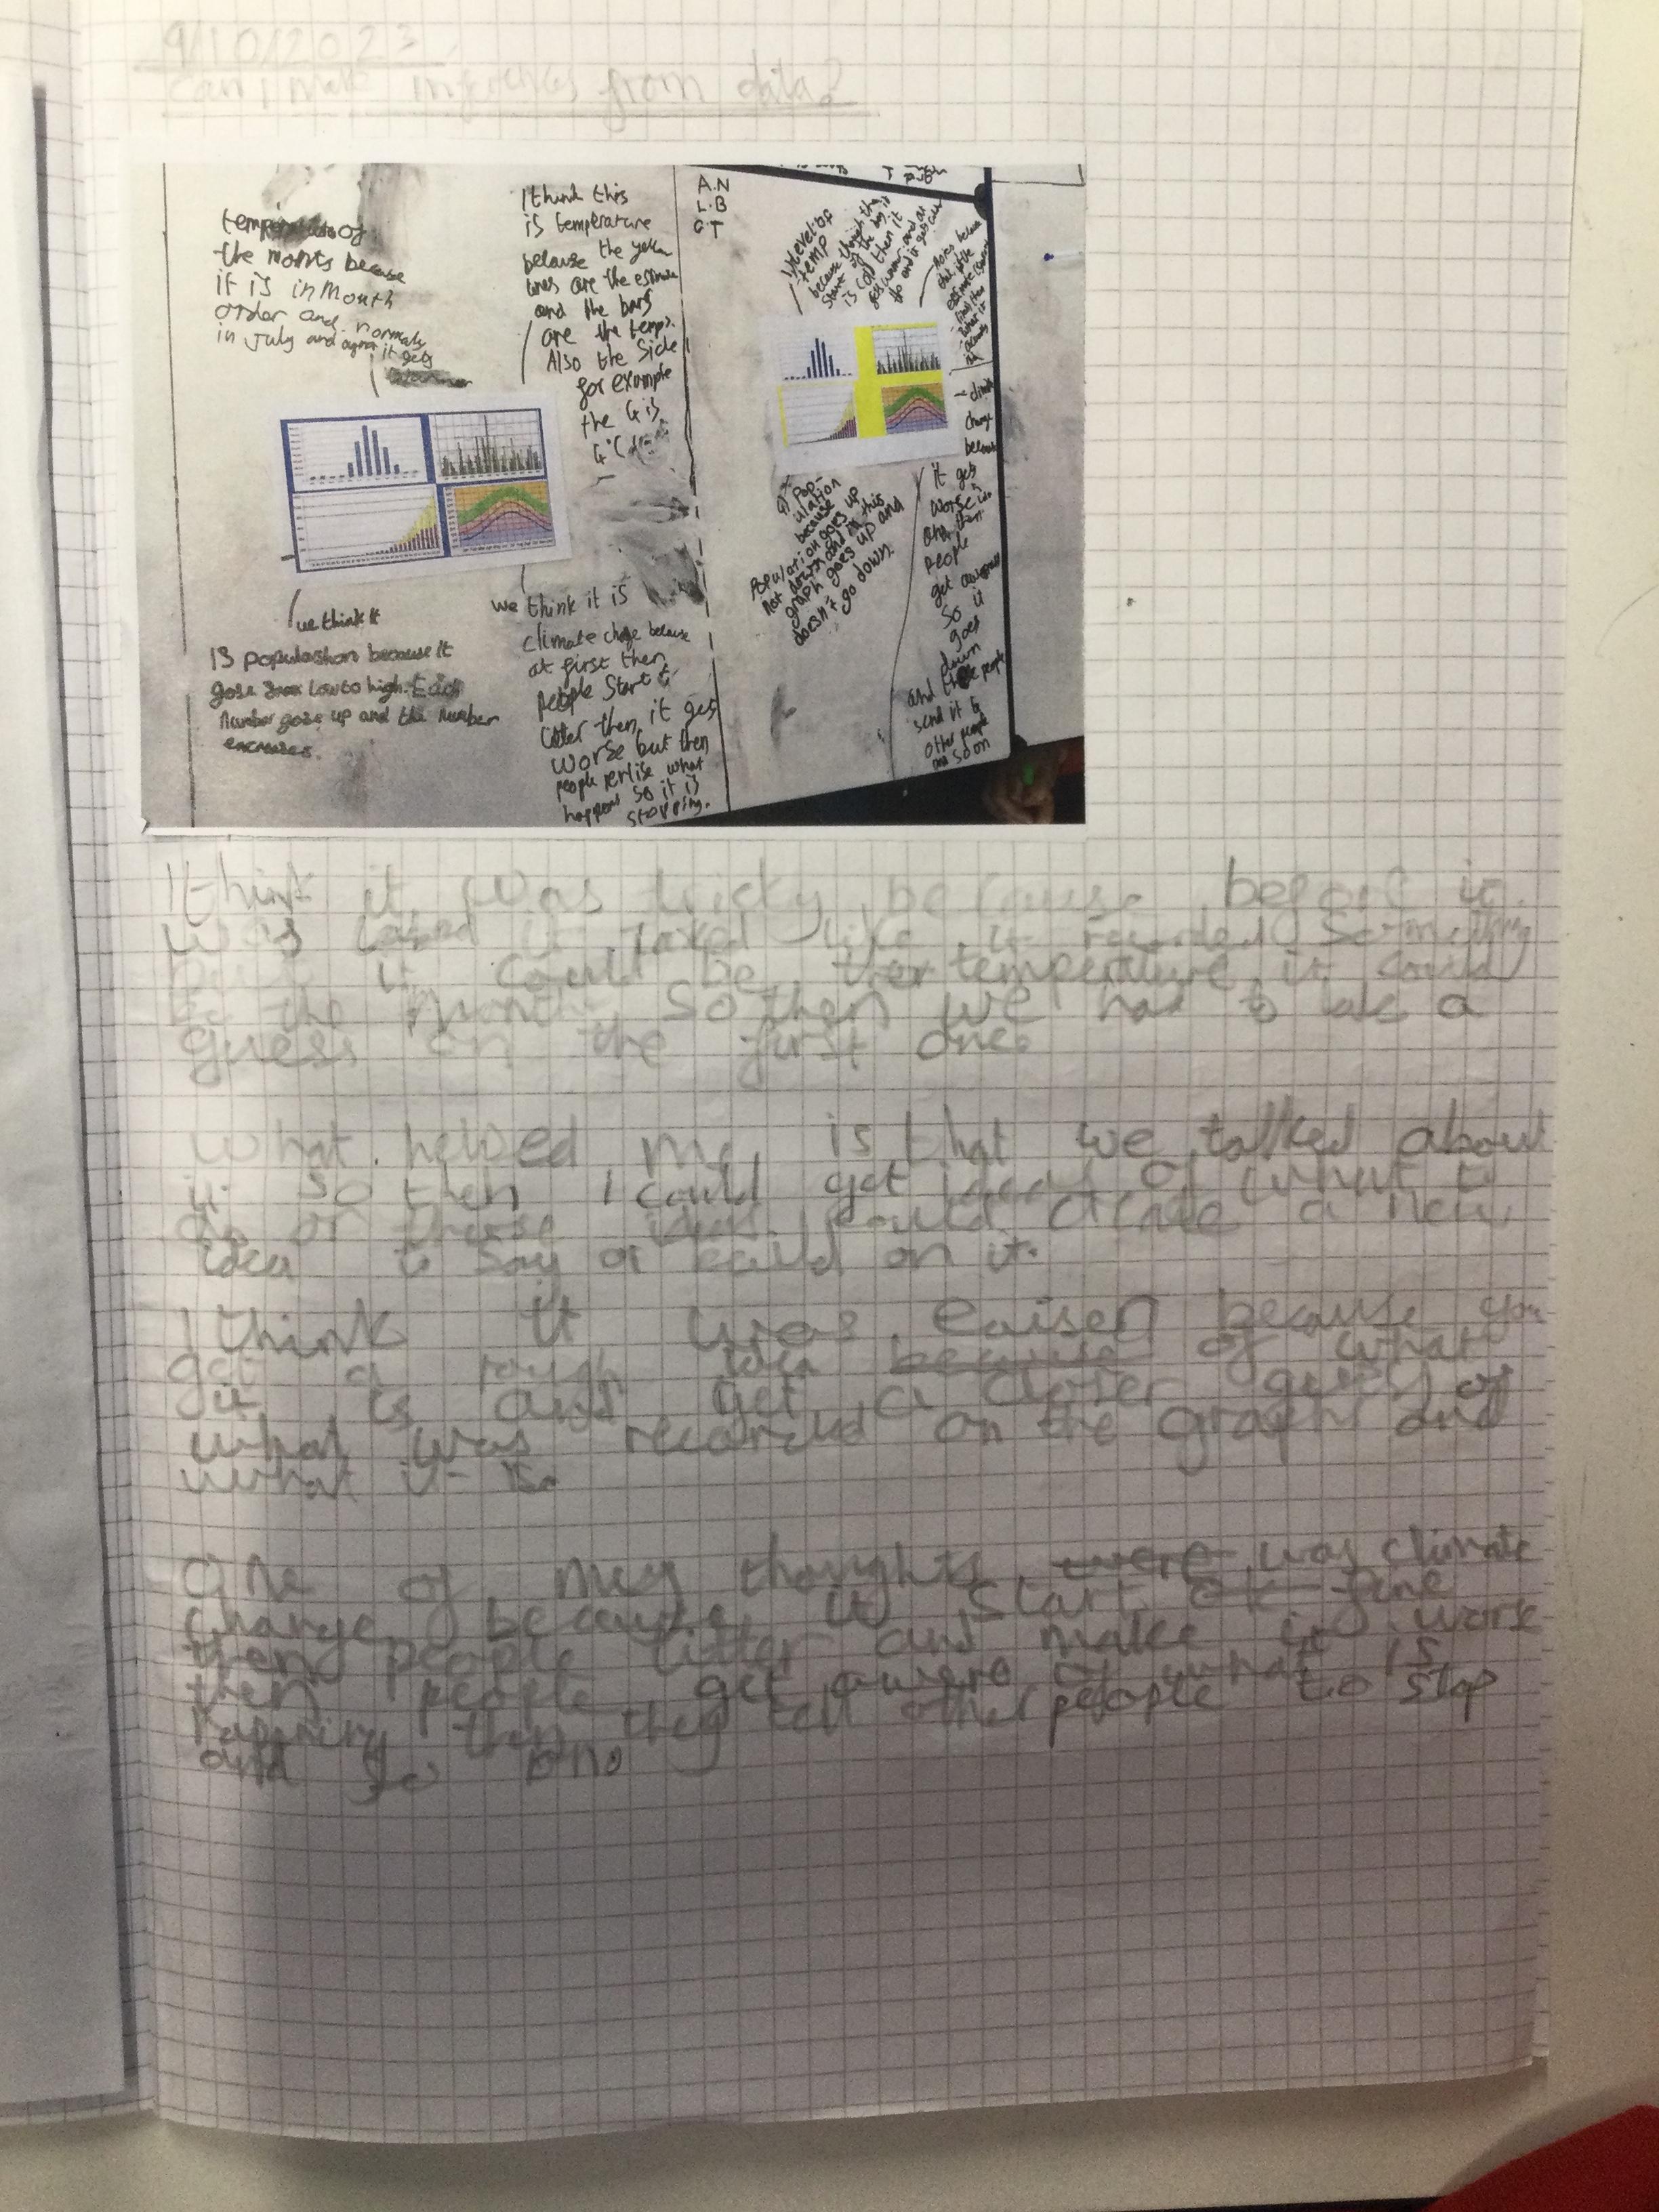 9/10/2023
can I make inferences from data?
of
the monts because
it is in Mouth
order and normaly
in July and it gets
I think this
is temperature
because the yellow
lines are the estimate
and the bars
are the temp.
Also the side
for example
the 4 is
4°C
we think it
is populashon because it
gose from low to high. Each
number gose up and the number
encreases.
we think it is
climate chage because
at first then
people start to
litter then it gets
worse but then
people rerlise what
happens so it is
stopping.
A.N
L.B
level of
temp
because
start of the day it
is cold then it
gets warmer and
4) Pop-
ulation
because
Population goes up
not down and in this
graph goes up and
doesn't go down.
climate
change
because
it gets
worse
and then
people
get
so it
goes
down
and people
send it to
other people
and soon
I think it was tricky because before it
was it looked like it recorded something
it could be temperature it could
be the month. So then we had to take a
guess on the first one.
What helped me is that we talked about
it so then I could get ideas of what to
do or these ideas could create a new
idea to say or on it.
I think it was because you
get a rough idea because of what
it is and get a closer guess of
what was recorded on the graph and
what it is.
One of my thoughts were was climate
change because it start ok fine
then people litter and make it
then people get awere of what is
then they tell other people to stop
and so on.